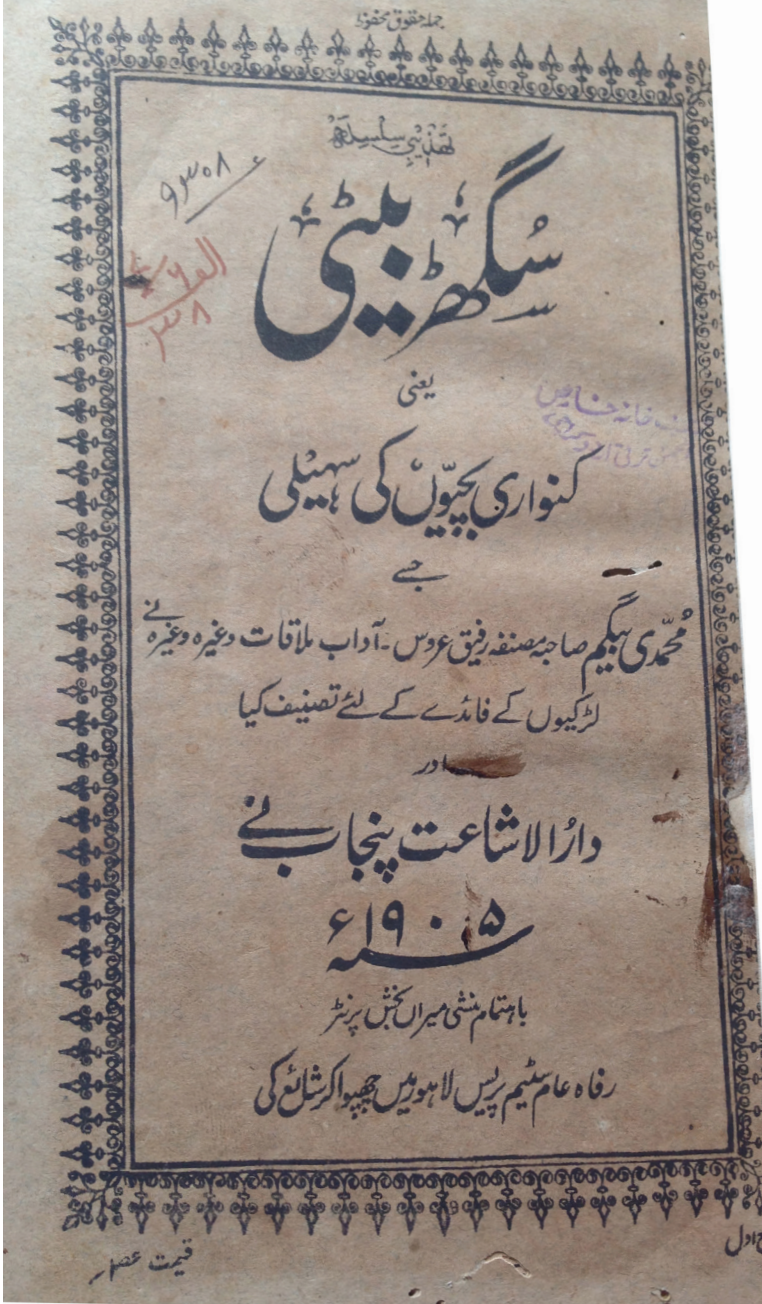 جملہ حقوق محفوظ
تہذیبی سلسلہ
۹۳۰۸
سُگھڑ بیٹی
۳۸
یعنی
خانہ خاص
کنواری بچیّوں کی سہیلی
جسے
مُحمّدی بیگم صاحبہ مصنفہ رفیق عروس۔ آداب ملاقات وغیرہ وغیرہ نے
لڑکیوں کے فائدے کے لئے تصنیف کیا
اور
دارُالاشاعت پنجاب نے
سنہ ۱۹۰۵ء
باہتمام منشی میراں بخش پرنٹر
رفاہ عام سٹیم پریس لاہور میں چھپوا کر شائع کی
اول
قیمت